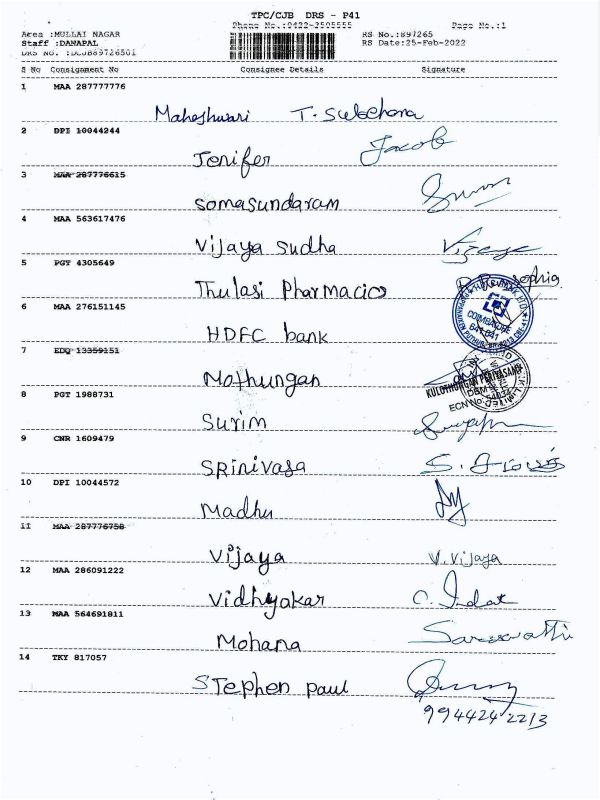 TPC/CJB DRS - P41
Phone No.:0422-2505555 Page No.:1
Area :MULLAI NAGAR RS No.:897265
Staff :DANAPAL RS Date:25-Feb-2022
DRS No. :DCJB89726501
S No Consignment No Consignee Details Signature
1 MAA 287777776
Maheshwari T. Sulochana
2 DPI 10044244
Jenifer Jacob
3 MAA 287776615
Somasundaram
4 MAA 563617476
Vijaya Sudha Vijaya
5 PGT 4305649
Thulasi Pharmacies Sophia
6 MAA 276151145
HDFC bank
COIMBATORE
641 041
7 EDQ 13359151
Mothungan
KULOTHUNGAN PERIYASAMI
ECN No. 54022
8 PGT 1988731
Surim
9 CNR 1609479
Srinivasa
10 DPI 10044572
Madhu
11 MAA 287776758
Vijaya V. Vijaya
12 MAA 286091222
Vidhyakar
13 MAA 564691811
Mohana Saraswathi
14 TKY 817057
Stephen paul
9944242213